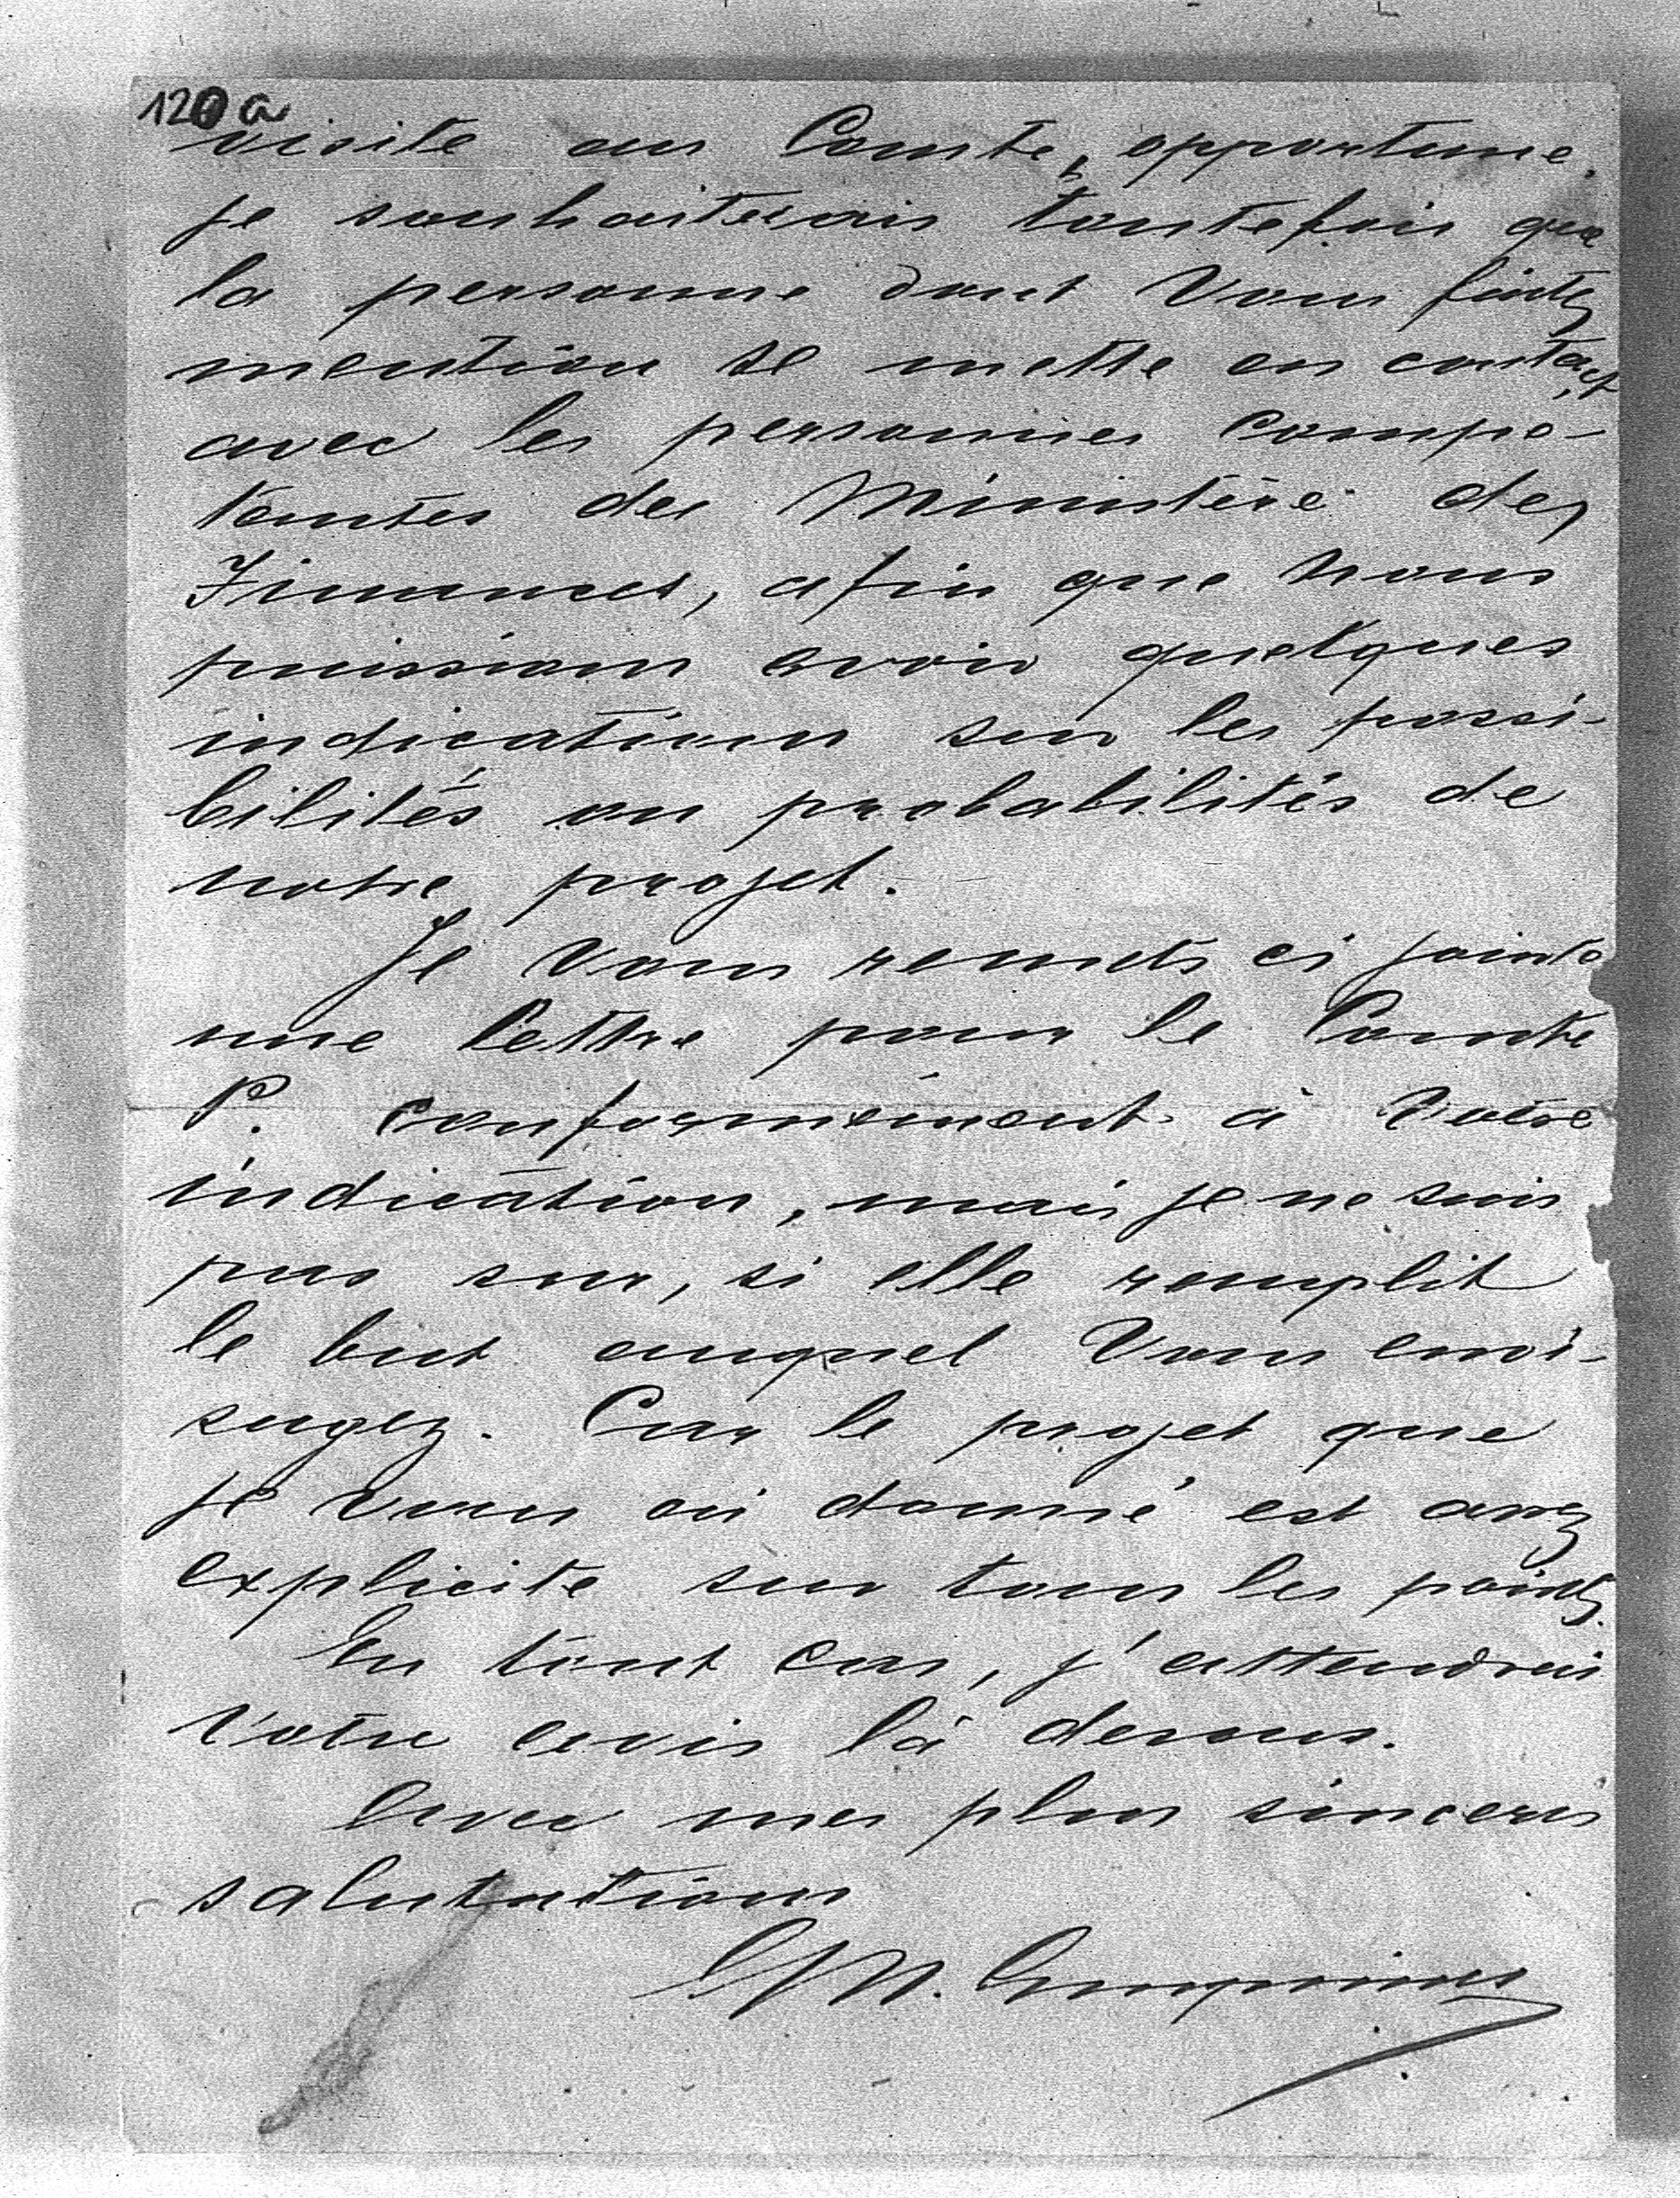 120a
visite au Comte, opportune.
je souhaiterais toutefois que
la personne dont Vous faites
mention se mette en contact
avec les personnes compé-
tentes des Ministère des
Finances, afin que nous
puissions avoir quelques
indications sur les possi-
bilités ou probabilités de
notre projet.
Je Vous remets ci jointe
une lettre pour le Comte
P. conformément à Votre
indication, mais je ne suis
pas sur, si elle remplit
le but auquel Vous envi-
sagez. Car le projet que
je Vous ai donné est assez
explicite sur tous les points.
En tout cas, j'attendrai
Votre avis là dessus.
Avec mes plus sinceres
salutations